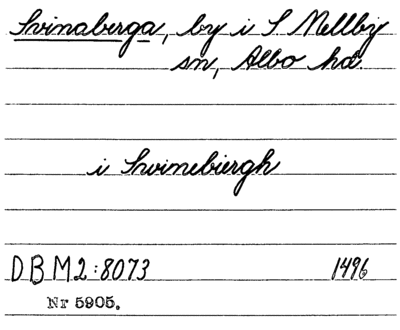 Svinaberga, by i S Mellby
sn, Albo hd.
i Swinebiergh
DBM2:8073 1496
Nr 5905.